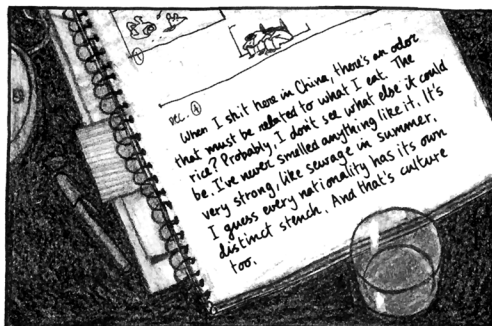 ①
DEC. ④
When I shit here in China, there's an odor
that must be related to what I eat. The
rice? Probably, I don't see what else it could
be. I've never smelled anything like it. It's
very strong, like sewage in summer.
I guess every nationality has its own
distinct stench. And that's culture
too.